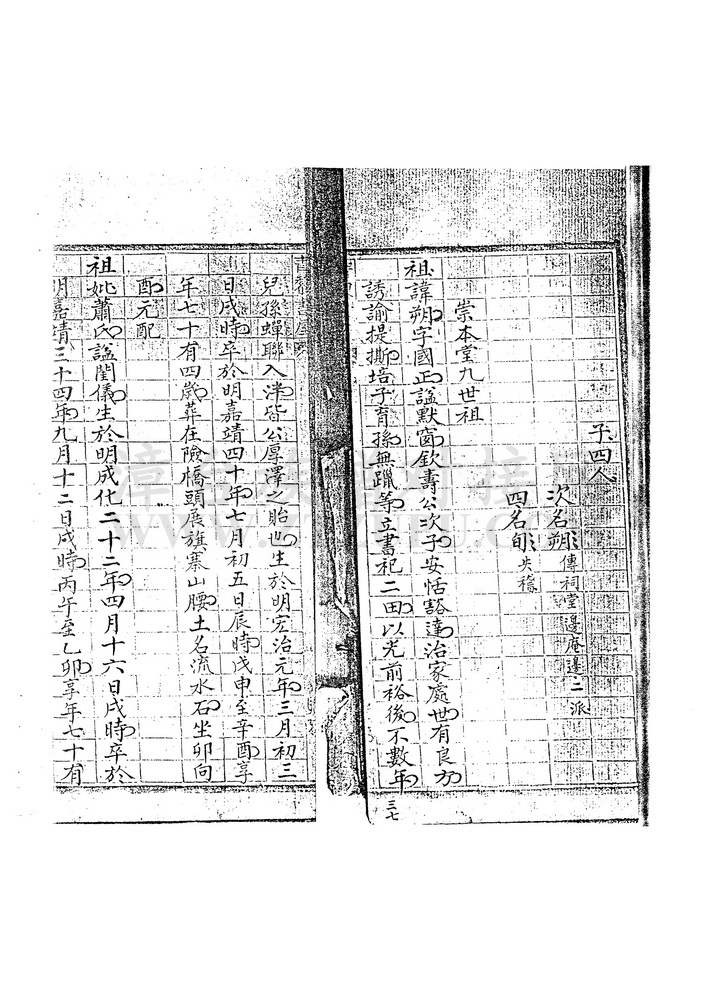 子四人
次名朔傳祠堂邊庵邊二派
四名旬失稽
崇本堂九世祖
祖諱朔字國正謚默窗欽壽公次子安恬豁達治家處世有良方
誘諭提撕培子育孫無躐等立書祀二田以光前裕後不數年
三七
兒孫蟬聯入泮皆公厚澤之貽也生於明宏治元年三月初三
日戌時卒於明嘉靖四十年七月初五日辰時戊申至辛酉享
年七十有四歲葬在險橋頭展旗寨山腰土名流水石坐卯向
酉元配
祖妣蕭氏謚閨儀生於明成化二十二年四月十六日戌時卒於
明嘉靖三十四年九月十二日戌時丙午至乙卯享年七十有